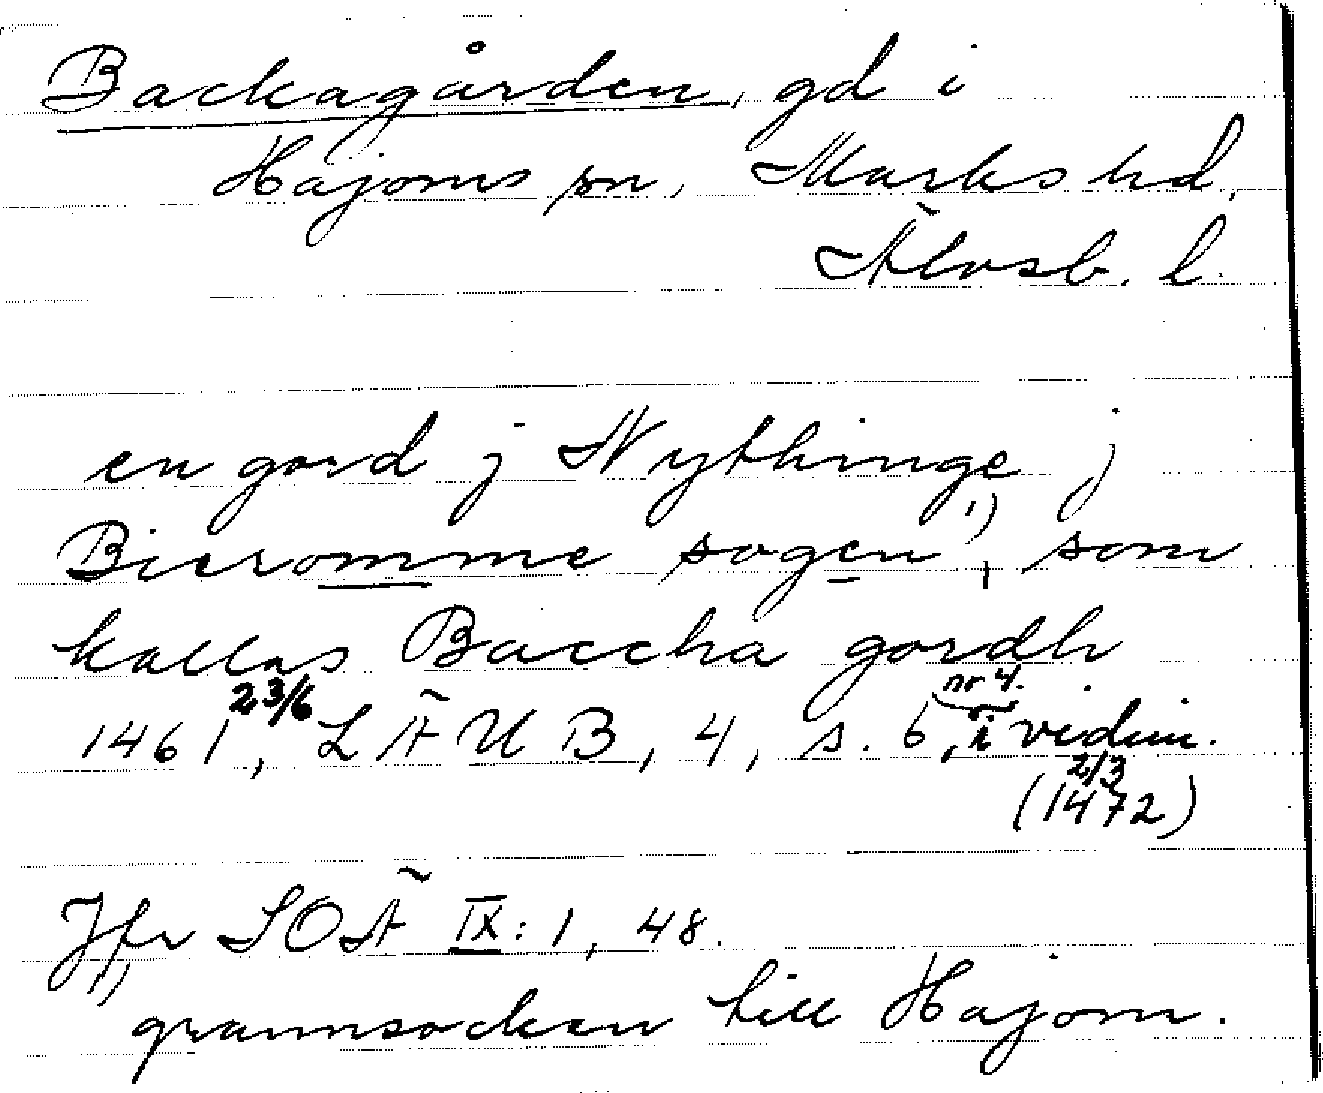 Backagården, gd i
Hajoms sn, Marks hd,
Älvsb. l.
en gord j Nythinge j
Bieromme sogen 1), som
kallas Baccha gordh
1461 23/6, LÄUB, 4, s. 6, nr 4. i vidim.
(1472 2/3)
Jfr SOÄ IX: 1, 48.
1) grannsocken till Hajom.